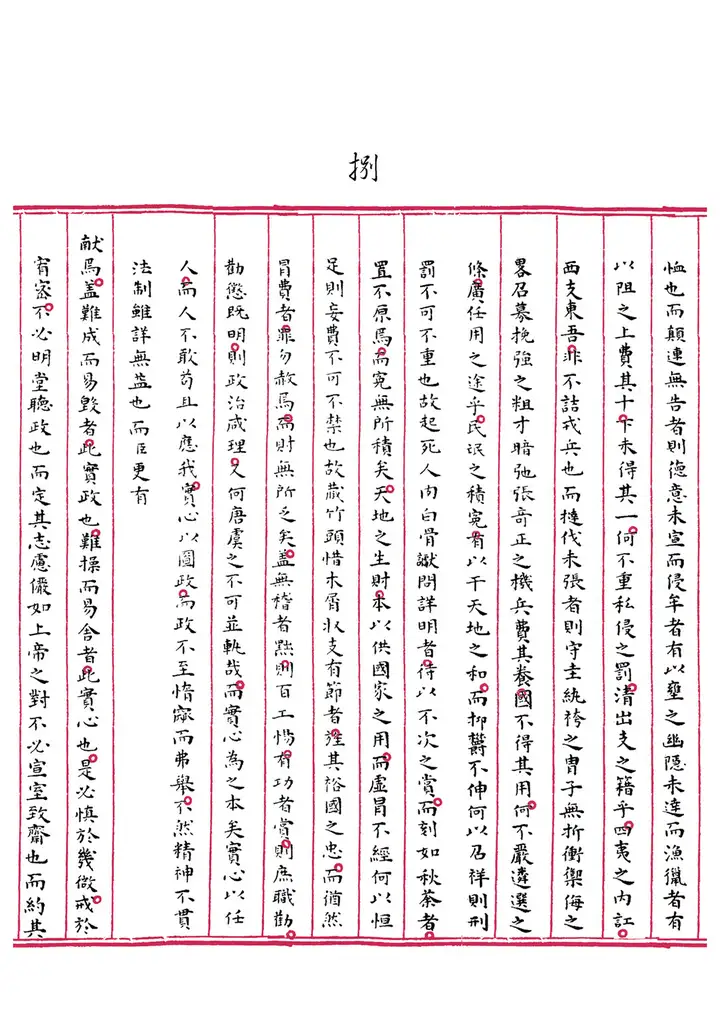 捌
恤也而顛連無告者則德意未宣而侵牟者有以壅之幽隱未達而漁獵者有
以阻之上費其十下未得其一何不重私侵之罰清出支之籍乎四夷之内訌
西支東吾非不詰戎兵也而撻伐未張者則守圭紈袴之冑子無折衝禦侮之
畧召募挽強之粗才暗弛張竒正之機兵費其養國不得其用何不嚴遴選之
條廣任用之途乎民氓之積寃有以干天地之和而抑欝不伸何以召祥則刑
罰不可不重也故起死人肉白骨讞問詳明者待以不次之賞而刻如秋荼者
置不原焉而寃無所積矣天地之生財本以供國家之用而虛冒不經何以恒
足則妄費不可不禁也故藏竹頭惜木屑收支有節者旌其裕國之忠而猶然
冒費者罪勿赦焉而財無所乏矣盖無稽者黜則百工惕有功者賞則庶職勸
勸懲既明則政治咸理又何唐虞之不可並軌哉而實心為之本矣實心以任
人而人不敢苟且以應我實心以圖政而政不至惰窳而弗舉不然精神不貫
法制雖詳無益也而臣更有
献焉盖難成而易毀者此實政也難操而易舍者此實心也是必慎於幾微戒於
宥密不必明堂聽政也而定其志慮儼如上帝之對不必宣室致齋也而約其